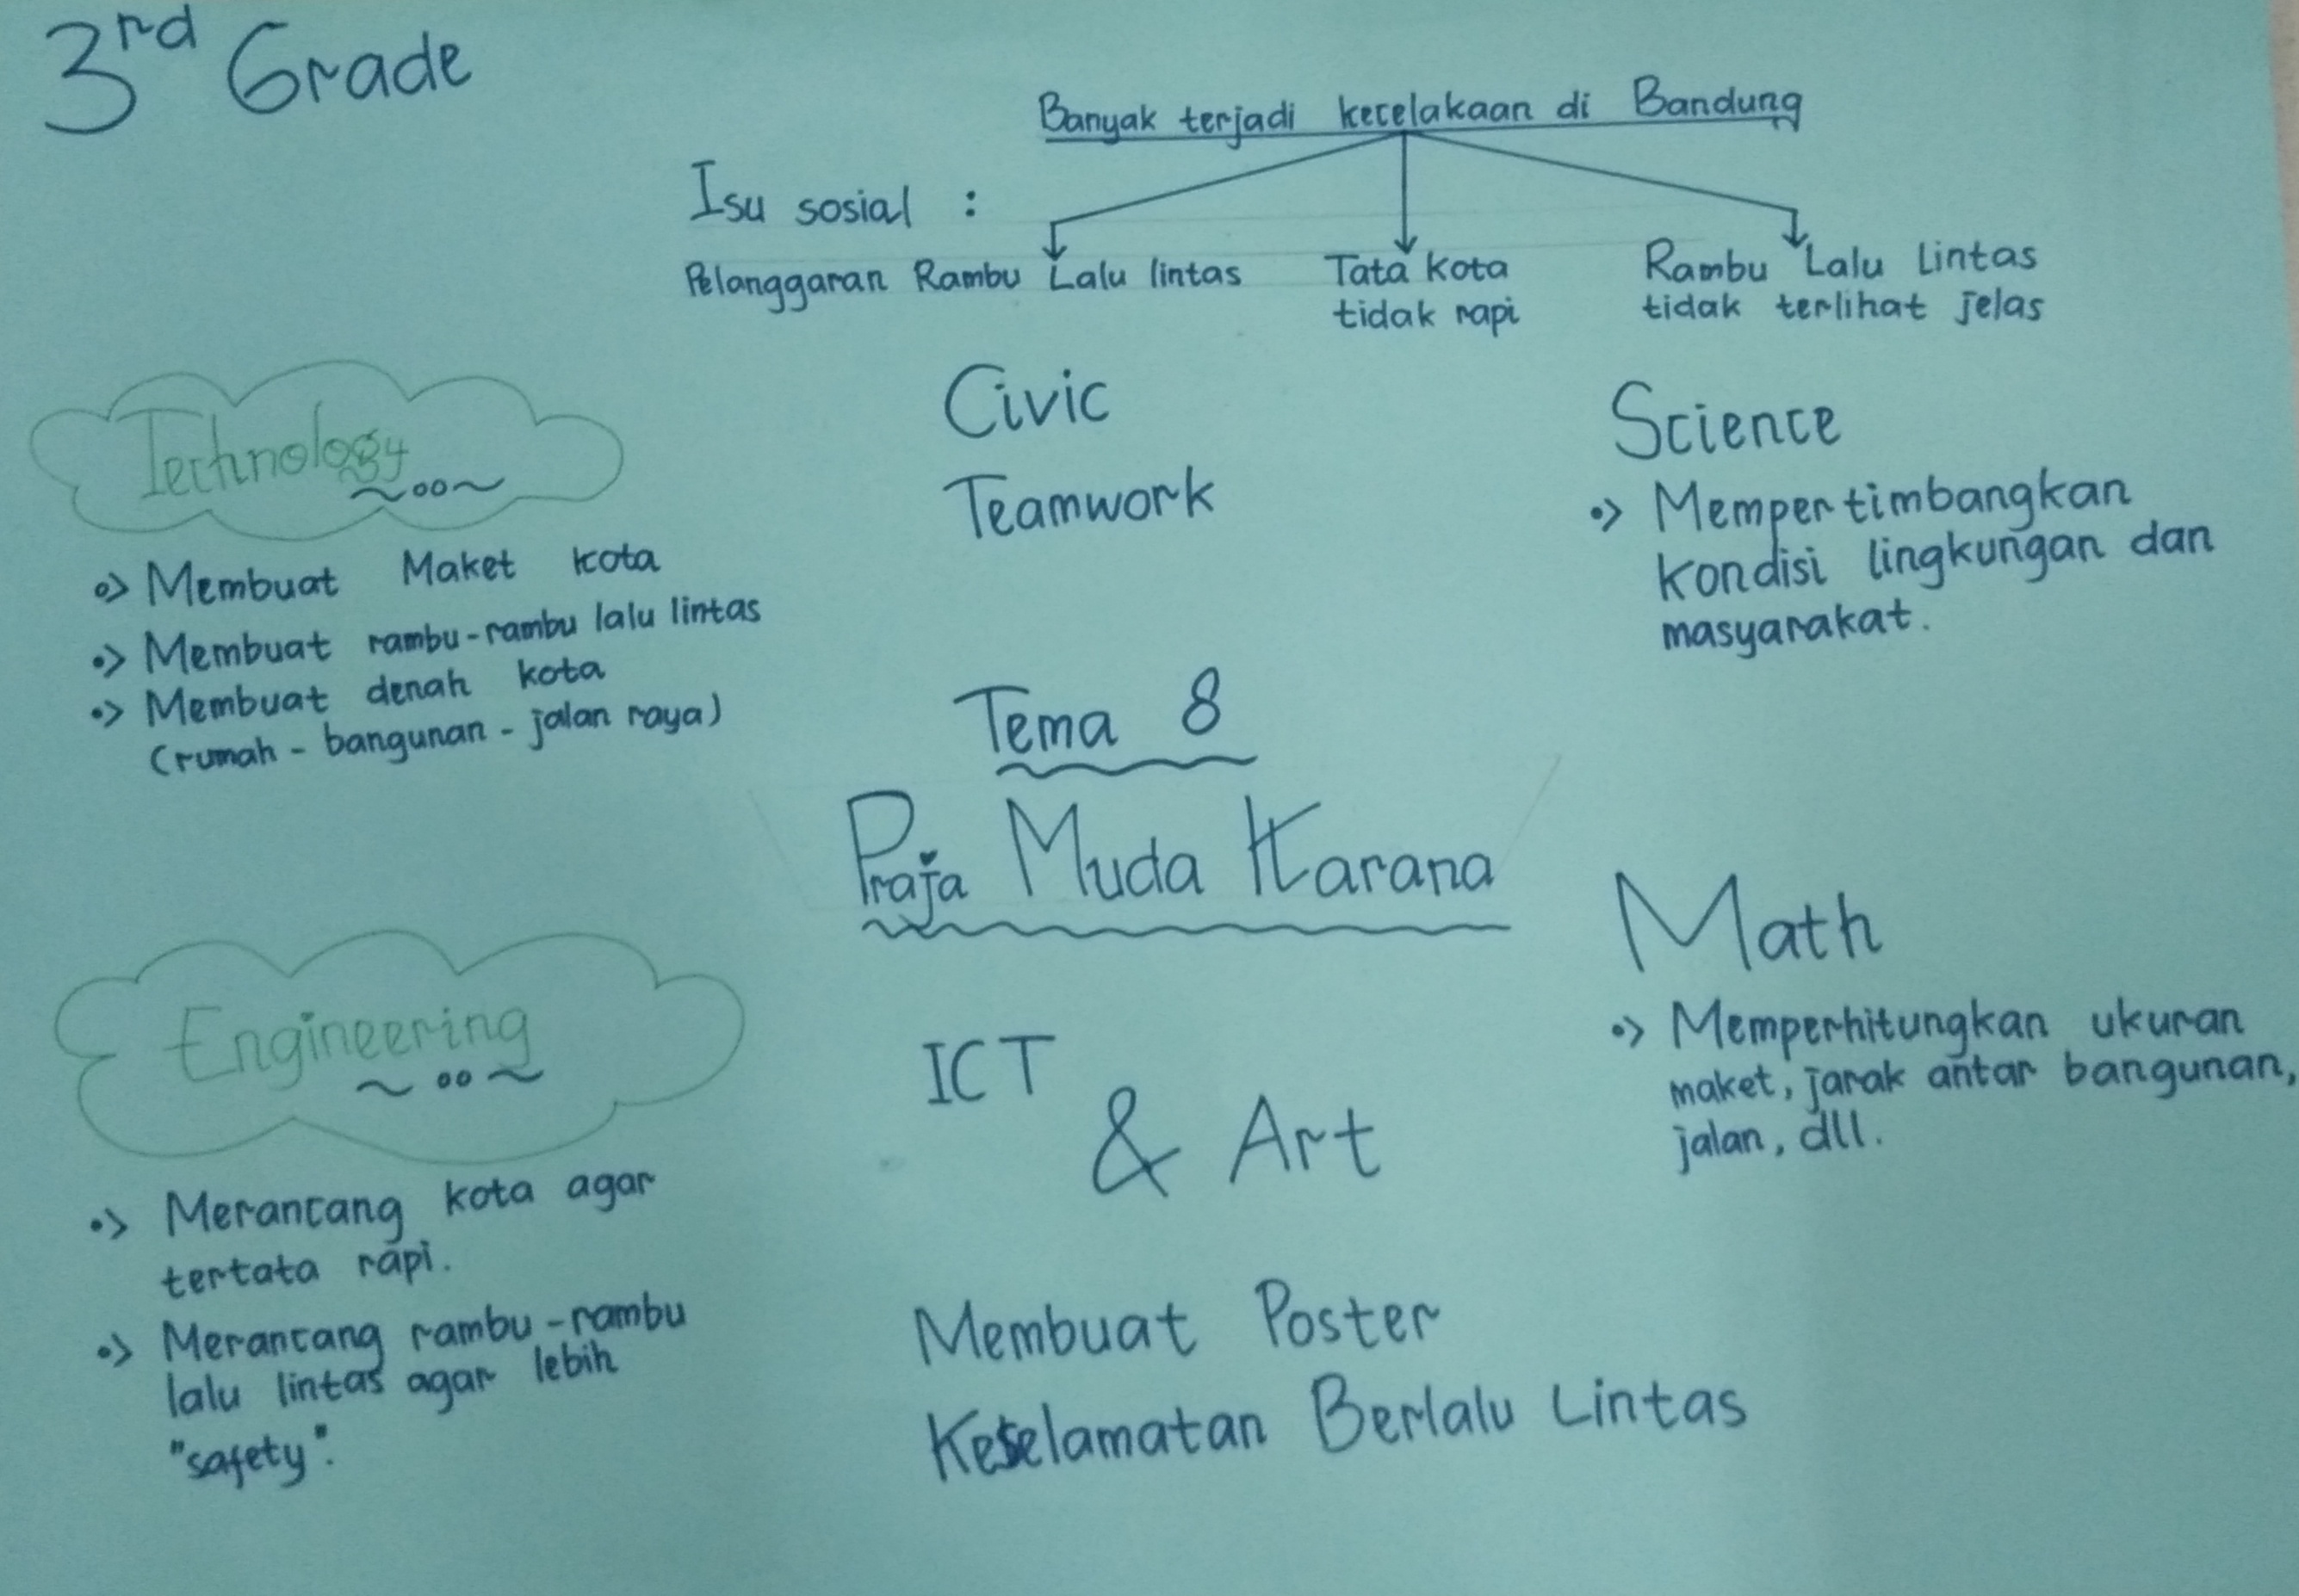 3rd Grade
Banyak terjadi kecelakaan di Bandung
Isu sosial :
Pelanggaran Rambu Lalu lintas
Tata kota
tidak rapi
Rambu Lalu Lintas
tidak terlihat jelas
Technology
Membuat Maket kota
Membuat rambu-rambu lalu lintas
Membuat denah kota
(rumah - bangunan - jalan raya)
Civic
Teamwork
Science
Mempertimbangkan
kondisi lingkungan dan
masyarakat.
Tema 8
Praja Muda Karana
Engineering
Merancang kota agar
tertata rapi.
Merancang rambu-rambu
lalu lintas agar lebih
"safety".
ICT
& Art
Membuat Poster
Keselamatan Berlalu Lintas
Math
Memperhitungkan ukuran
maket, jarak antar bangunan,
jalan, dll.